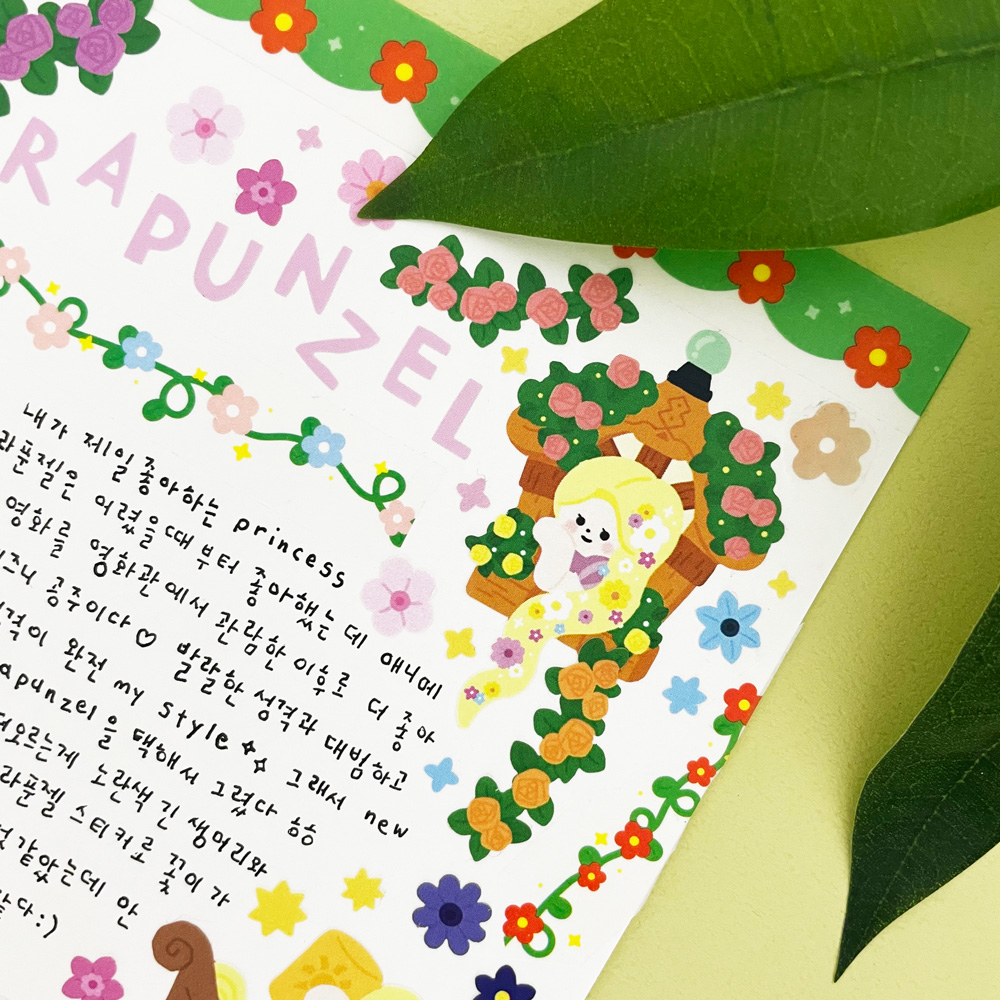 RAPUNZEL
내가 제일 좋아하는 princess
라푼젤은 어렸을때 부터 좋아했는 데 애니메
영화를 영화관에서 관람한 이후로 더 좋아
즈니 공주이다♡ 발랄한 성격과 대범하고
격이 완전 my style 그래서 new
apunzel을 택해서 그렸다 흠흠
떠오르는게 노란색 긴 생머리와
라푼젤 스티커로 꽃이 가
것 같았는데 안
다:)